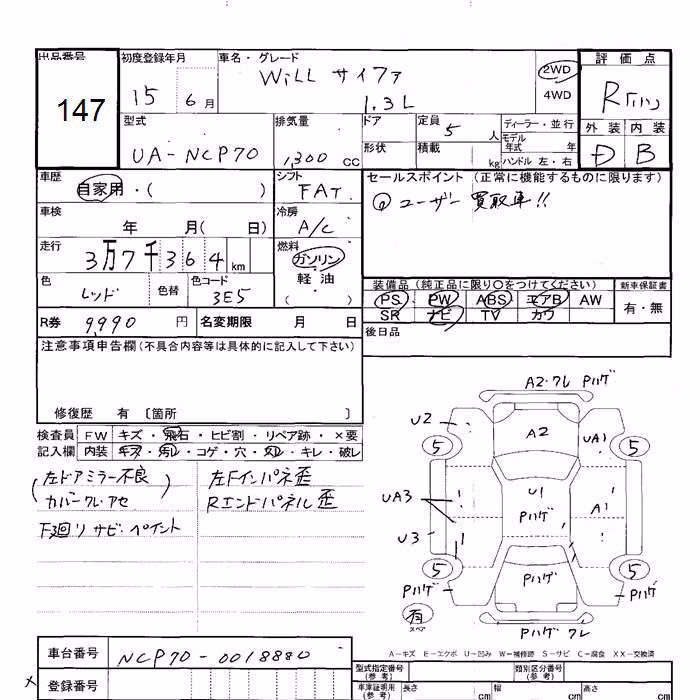 出品番号
147
初度登録年月
15 6月
車名・グレード
WiLL サイファ
1.3L
2WD
4WD
評価点
R
外装 内装
D B
型式
UA-NCP70
排気量
1,300 cc
ドア
形状
定員 5 人
積載 kg
ディーラー・並行
モデル年式 年
ハンドル 左・右
車歴
自家用・( )
シフト
FAT
車検
年 月( 日)
冷房
A/C
走行
3万7千364km
燃料
ガソリン
軽油
( )
色
レッド
色替
色コード
3E5
セールスポイント (正常に機能するものに限ります)
①ユーザー買取車!!
装備品(純正品に限り〇をつけてください)
PS PW ABS エアB AW
SR ナビ TV カワ
新車保証書
有・無
後日品
R券 9,990 円
名変期限 月 日
注意事項申告欄(不具合内容等は具体的に記入して下さい)
修復歴 有 〔箇所 〕
検査員 FW キズ・飛石・ヒビ割・リペア跡・×要
記入欄 内装 キズ・汚レ・コゲ・穴・スレ・キレ・破レ
左ドアミラー不良
カバークレ・アセ
下廻リ サビ・ペイント
左Fインパネ歪
Rエンドパネル歪
A2・クレ Pハゲ
U2
A2
UA1
5
5
UA3
U1
Pハゲ
A1
U3
5
5
Pハゲ
Pハゲ
Pハゲ
有
スペア
Pハゲ クレ
A-キズ E-エクボ U-凹み W-補修跡 S-サビ C-腐食 XX-交換済
車台番号 NCP70-0018880
登録番号
型式指定番号(参考)
類別区分番号(参考)
車庫証明用(参考)
長さ cm
幅 cm
高さ cm